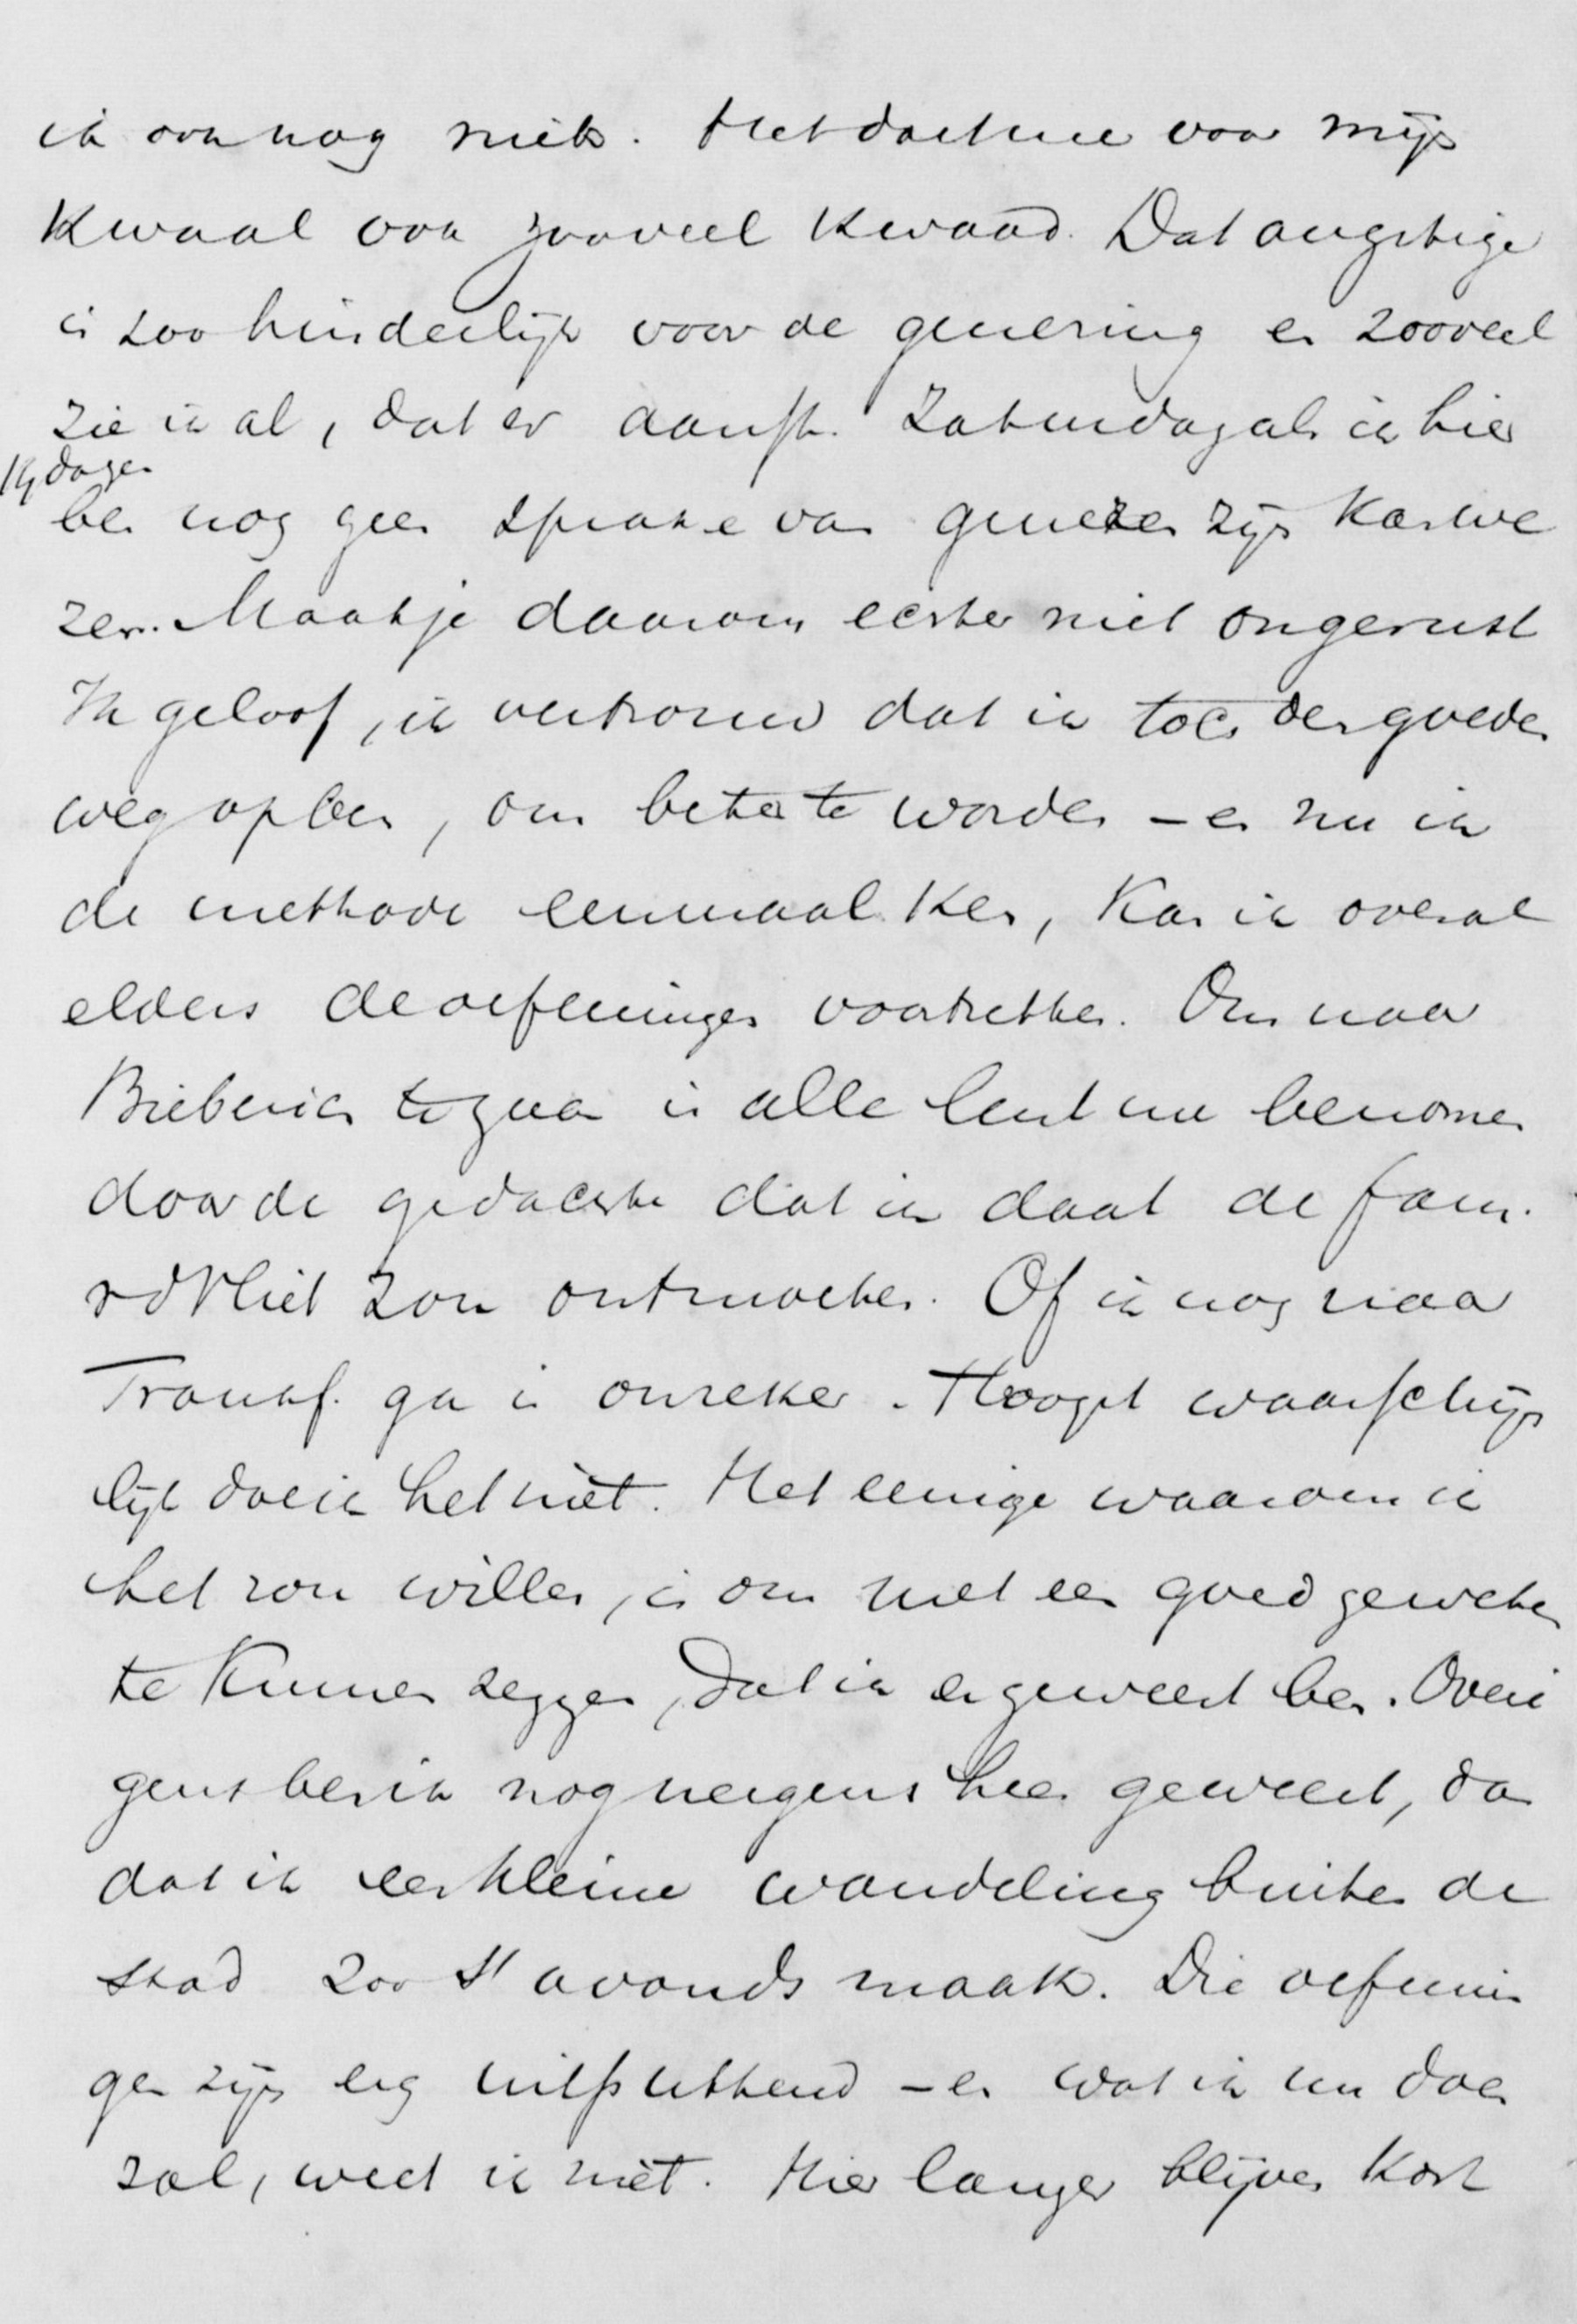 ik ook nog niets. Het doet me voor mijn
kwaal ook zooveel kwaad. Dat angstige
is zoo hinderlijk voor de genezing en zooveel
zie ik al, dat er aanst. Zaterdag als ik hier
14 dagen
ben nog geen sprake van genezen zijn kan we
zen. Maak je daarom echter niet ongerust
Ik geloof, ik vertrouw dat ik toch den goeden
weg op ben, om beter te worden – en nu ik
de methode eenmaal ken, kan ik overal
elders de oefeningen voortzetten. Om naar
Bieberich te gaan is alle lust me benomen
door de gedachte dat ik daar de fam.
v d Vliet zou ontmoeten. Of ik nog naar
Frankf. ga is onzeker. Hoogst waarschijn
lijk doe ik het niet. Het eenige waarom ik
het zou willen, is om met een goed geweten
te kunnen zeggen, dat ik er geweest ben. Overi
gens ben ik nog nergens heen geweest, dan
dat ik een kleine wandeling buiten de
stad zoo 's avonds maak. Die oefenin
gen zijn erg uitputtend – en wat ik nu doen
zal, weet ik niet. Hier langer blijven kost